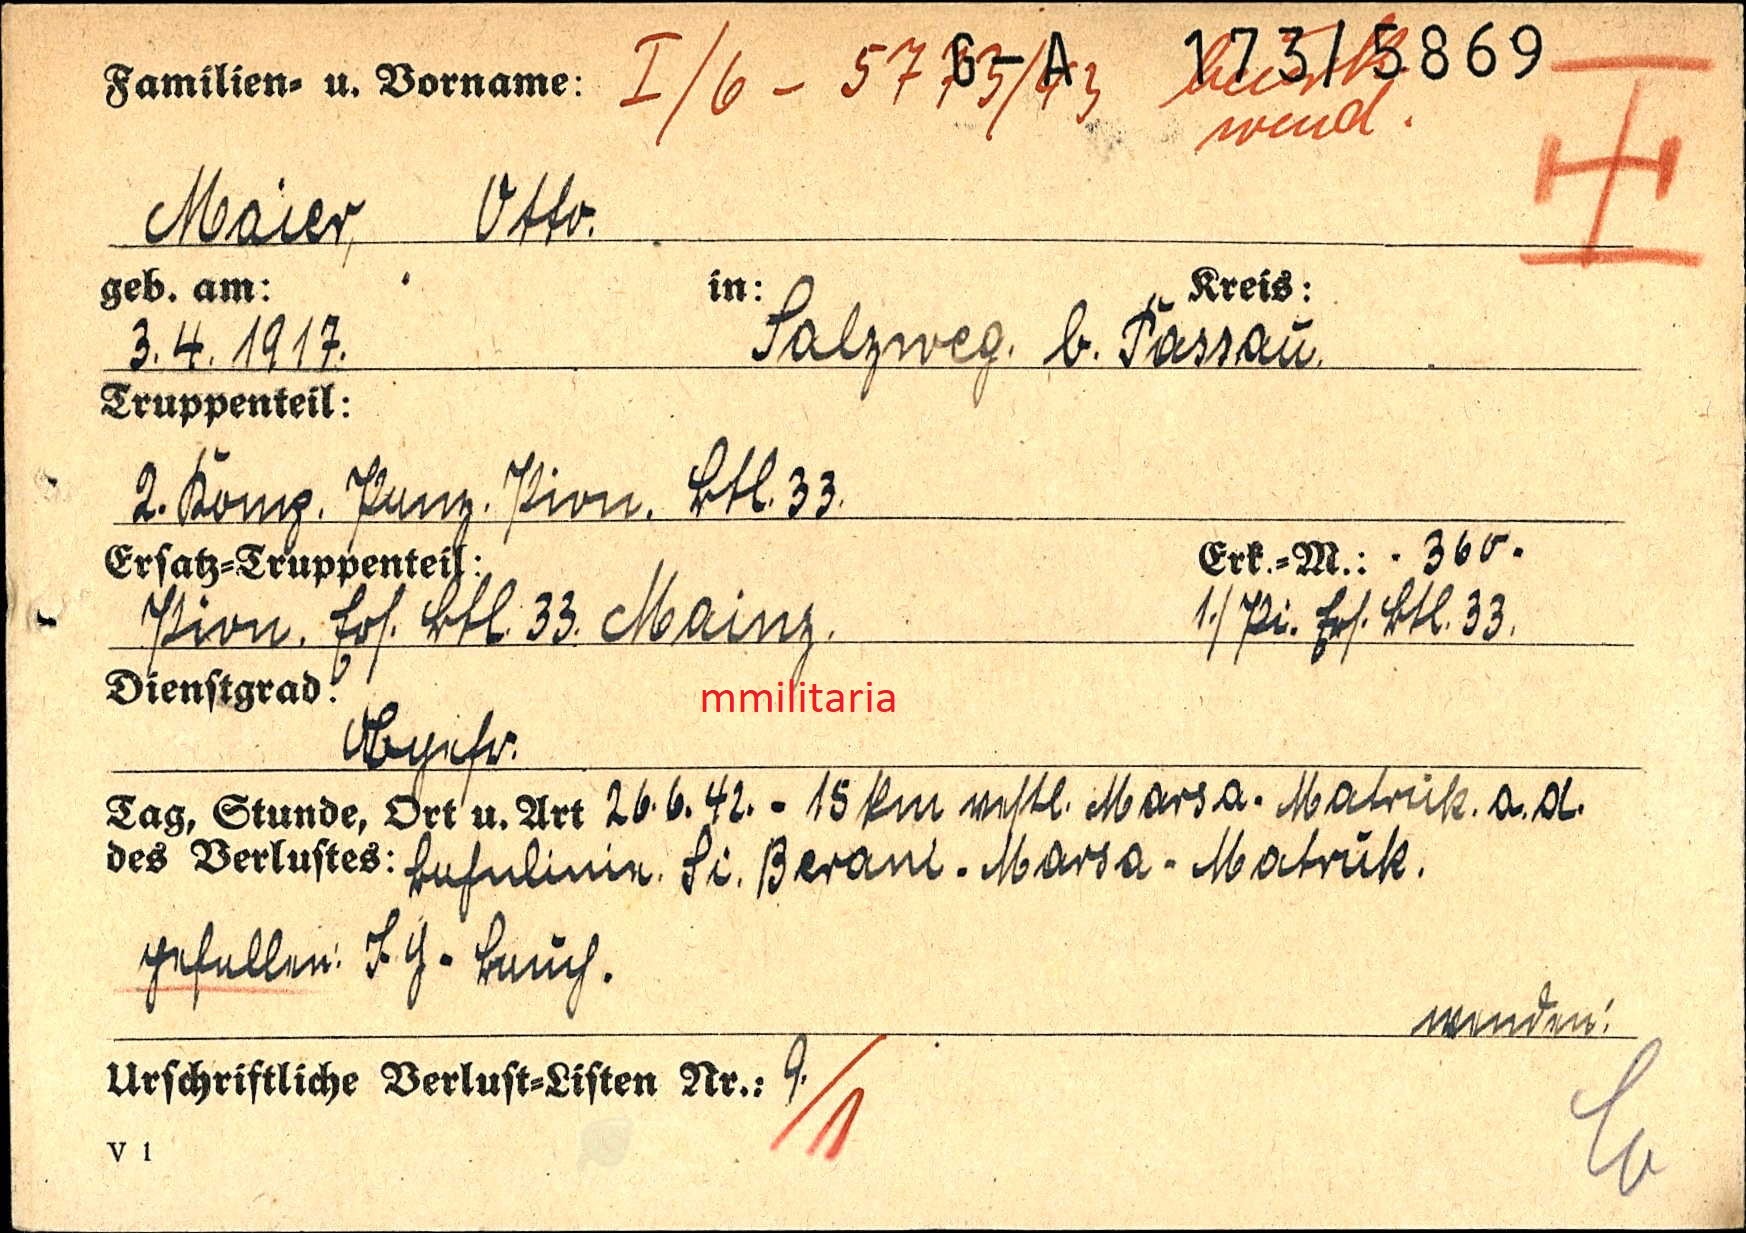 G-A 173/5869
Familien- u. Vorname: I/6 - 5773/43 beurk.
wend.
Maier, Otto.
geb. am: in: Kreis:
3.4.1917. Salzweg. b. Passau.
Truppenteil:
2. Komp. Panz. Pion. Btl. 33.
Ersatz-Truppenteil: Erk.-M.: - 360 -
Pion. Ers. Btl. 33. Mainz. 1./Pi. Ers. Btl. 33.
Dienstgrad:
mmilitaria
Obgefr.
Tag, Stunde, Ort u. Art 26.6.42. - 15 km westl. Marsa-Matruk. a. d.
des Verlustes: Bahnlinie. Si. Berani - Marsa-Matruk.
gefallen: I.G - Bauch.
wenden!
Urschriftliche Verlust-Listen Nr.: 9./1
V 1